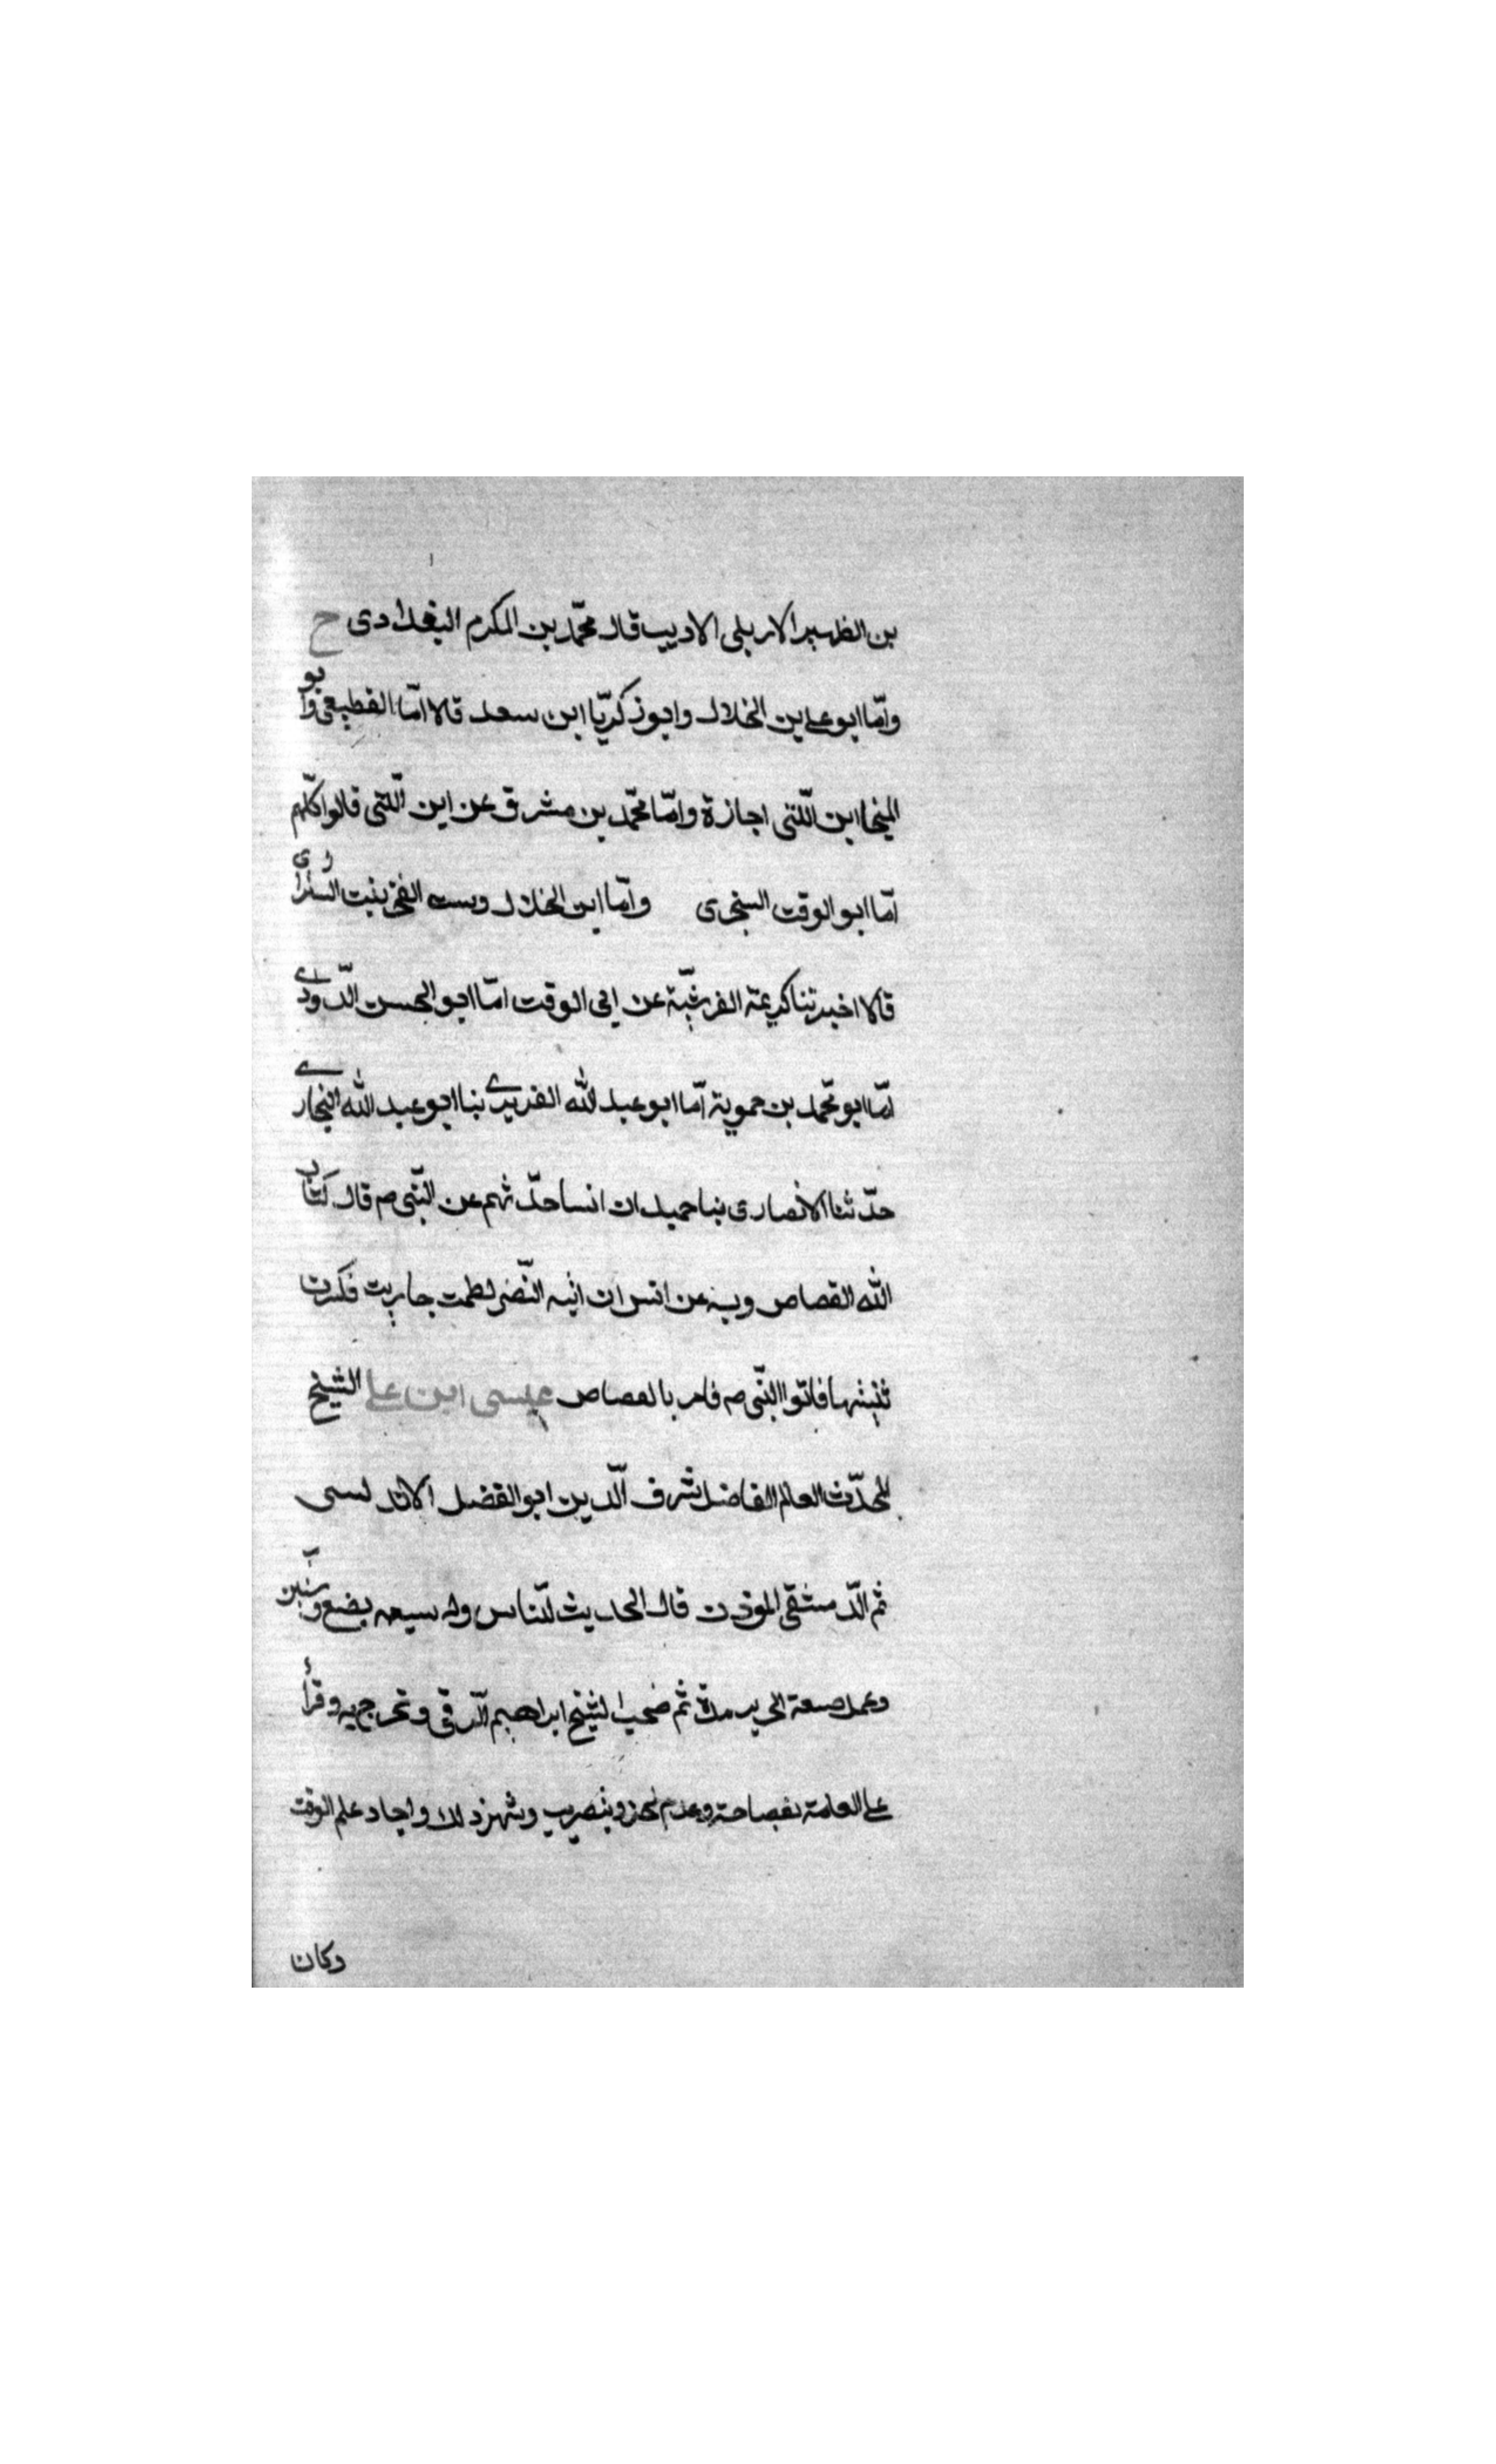 بن الظهير الاربلى الاديب قال محمّد بن المكرم البغدادى ح
وامّا ابو على بن الخلال وابو زكريّا ابن سعد قالا امّا القطيعى وابو
المنجا ابن اللّتى اجازة وامّا محمّد بن مشرق عن ابن اللّتى قالوا كلّهم
امّا ابو الوقت السنجرى وامّا ابن الخلال وست الفخر بنت الشيرازى
قالا اخبرتنا كريمة القرشيّة عن ابى الوقت امّا ابو الحسن الدّاودى
امّا ابو محمّد بن حموية امّا ابو عبد الله الفربرى بنا ابو عبد الله البخارى
حدّثنا الانصارى بنا حميد ان انسا حدّثهم عن النّبى ص قال كتاب
الله القصاص وبه عن انس ان ابنه النّضر لطمت جاريت فكسرت
ثنيتها فاتوا النّبى ص فامر بالقصاص عيسى ابن على الشيخ
المحدّث العالم الفاضل شرف الّدين ابو الفضل الاندلسى
ثم الدّمشقى الموذن قال الحديث للنّاس وله سبعه بضع وسنين
وعمل صنعة الحرير مدّة ثم صحب الشيخ ابراهيم الّرقى وتخرج به وقرأ
على العامة بفصاحة وعدم لحن وبتصريب وشهر ذلك واجاد علم الوقت
وكان